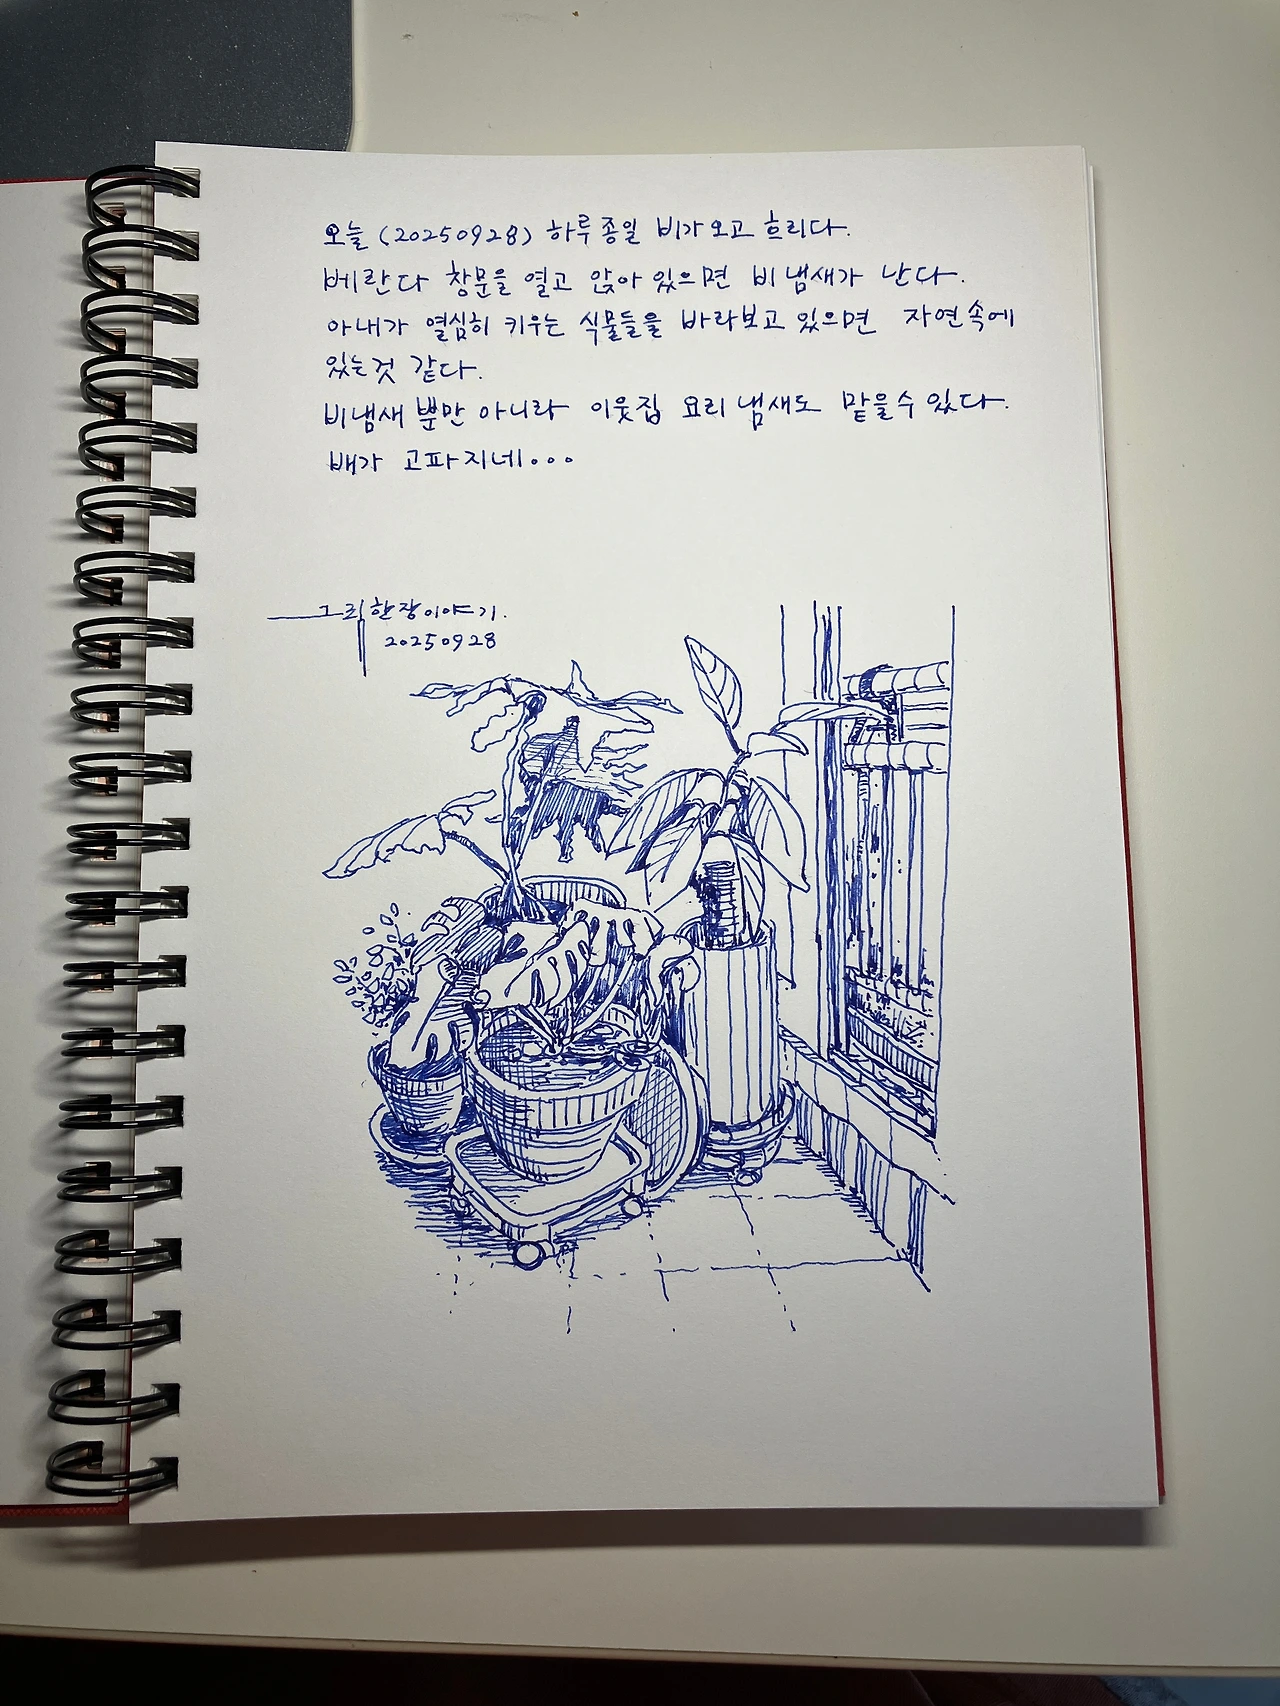 오늘 (20250928) 하루종일 비가오고 흐리다.
베란다 창문을 열고 앉아 있으면 비 냄새가 난다.
아내가 열심히 키우는 식물들을 바라보고 있으면 자연속에
있는것 같다.
비냄새 뿐만 아니라 이웃집 요리 냄새도 맡을수 있다.
배가 고파지네...
그림한장이야기.
20250928